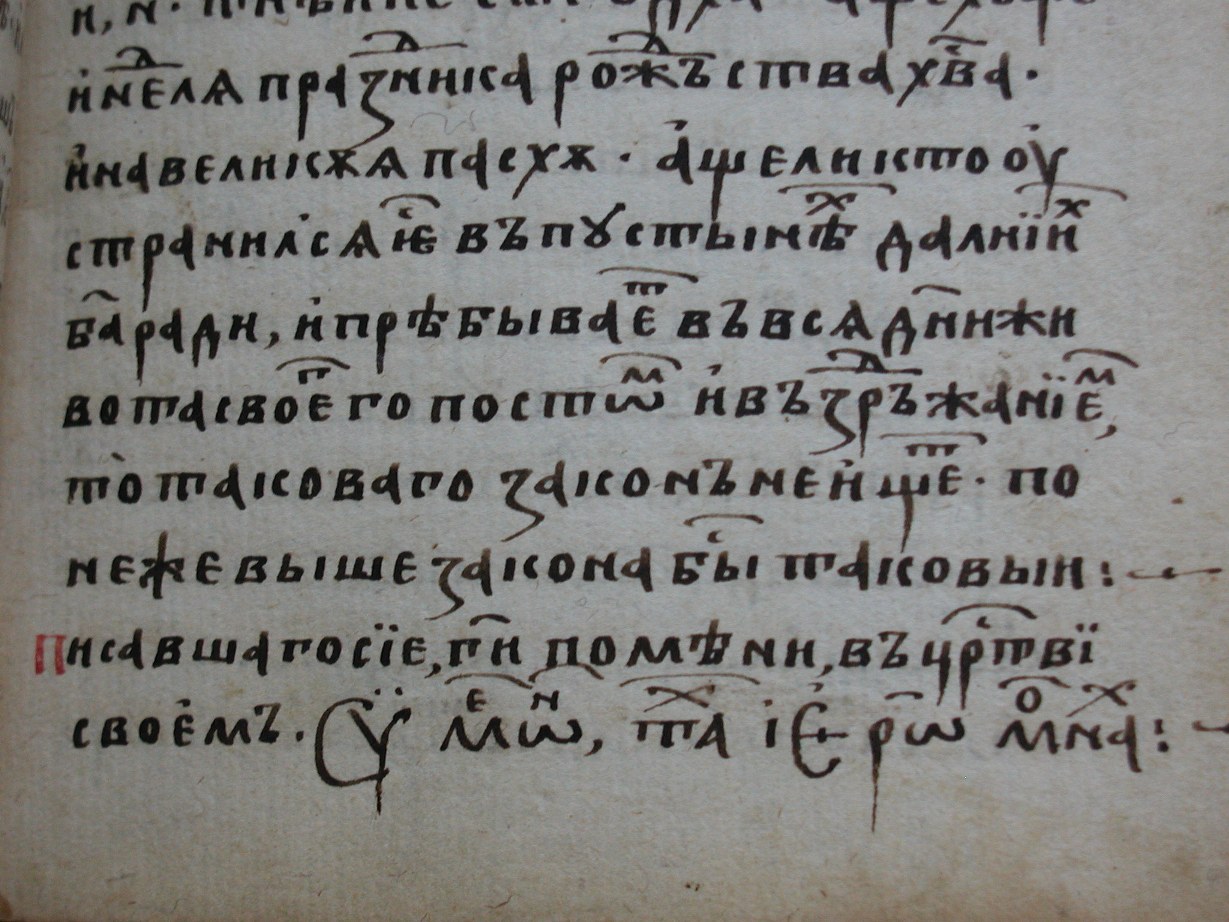 и҆не́лѧ празⷣника рожⷣъства хв҃а ·
и҆на великѫѧ пасхѫ · а҆щели кто ѹ҆
странилсѧ ѥⷭ҇ въ пꙋстынѣⷯ далнїиⷯ
ба҃ ради, и҆прѣбываеⷮ въ всѧ дн҃и жи
вота своеⷢ҇го постѡⷨ и҆въздⷣръжанїеⷨ,
то̀ таковаго законъ неи҆щеⷮ · по
неже выше закона быⷭ҇ таковыи :
Писавшаго сїе, гп҃и помѣни, въ црⷭ҇твї
своемъ. Сѷмеⷩѡ, таⷯ і҆єрѡ моⷩаⷯ :